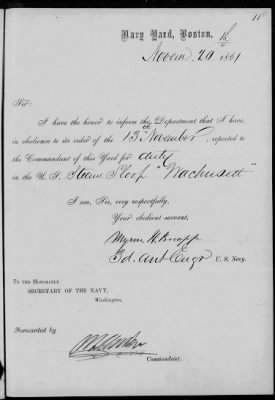 Navy Yard, Boston,
Novem 20th 1861
Sir:
I have the honor to inform the Department that I have,
in obedience to its order of the 13th November, reported to
the Commandant of this Yard for duty
in the U. S. Steam Sloop "Wachusett"
I am, Sir, very respectfully,
Your obedient servant,
Myron H. Knapp
3d. Asst Engr U. S. Navy.
To the Honorable
SECRETARY OF THE NAVY,
Washington.
Forwarded by
Commandant.